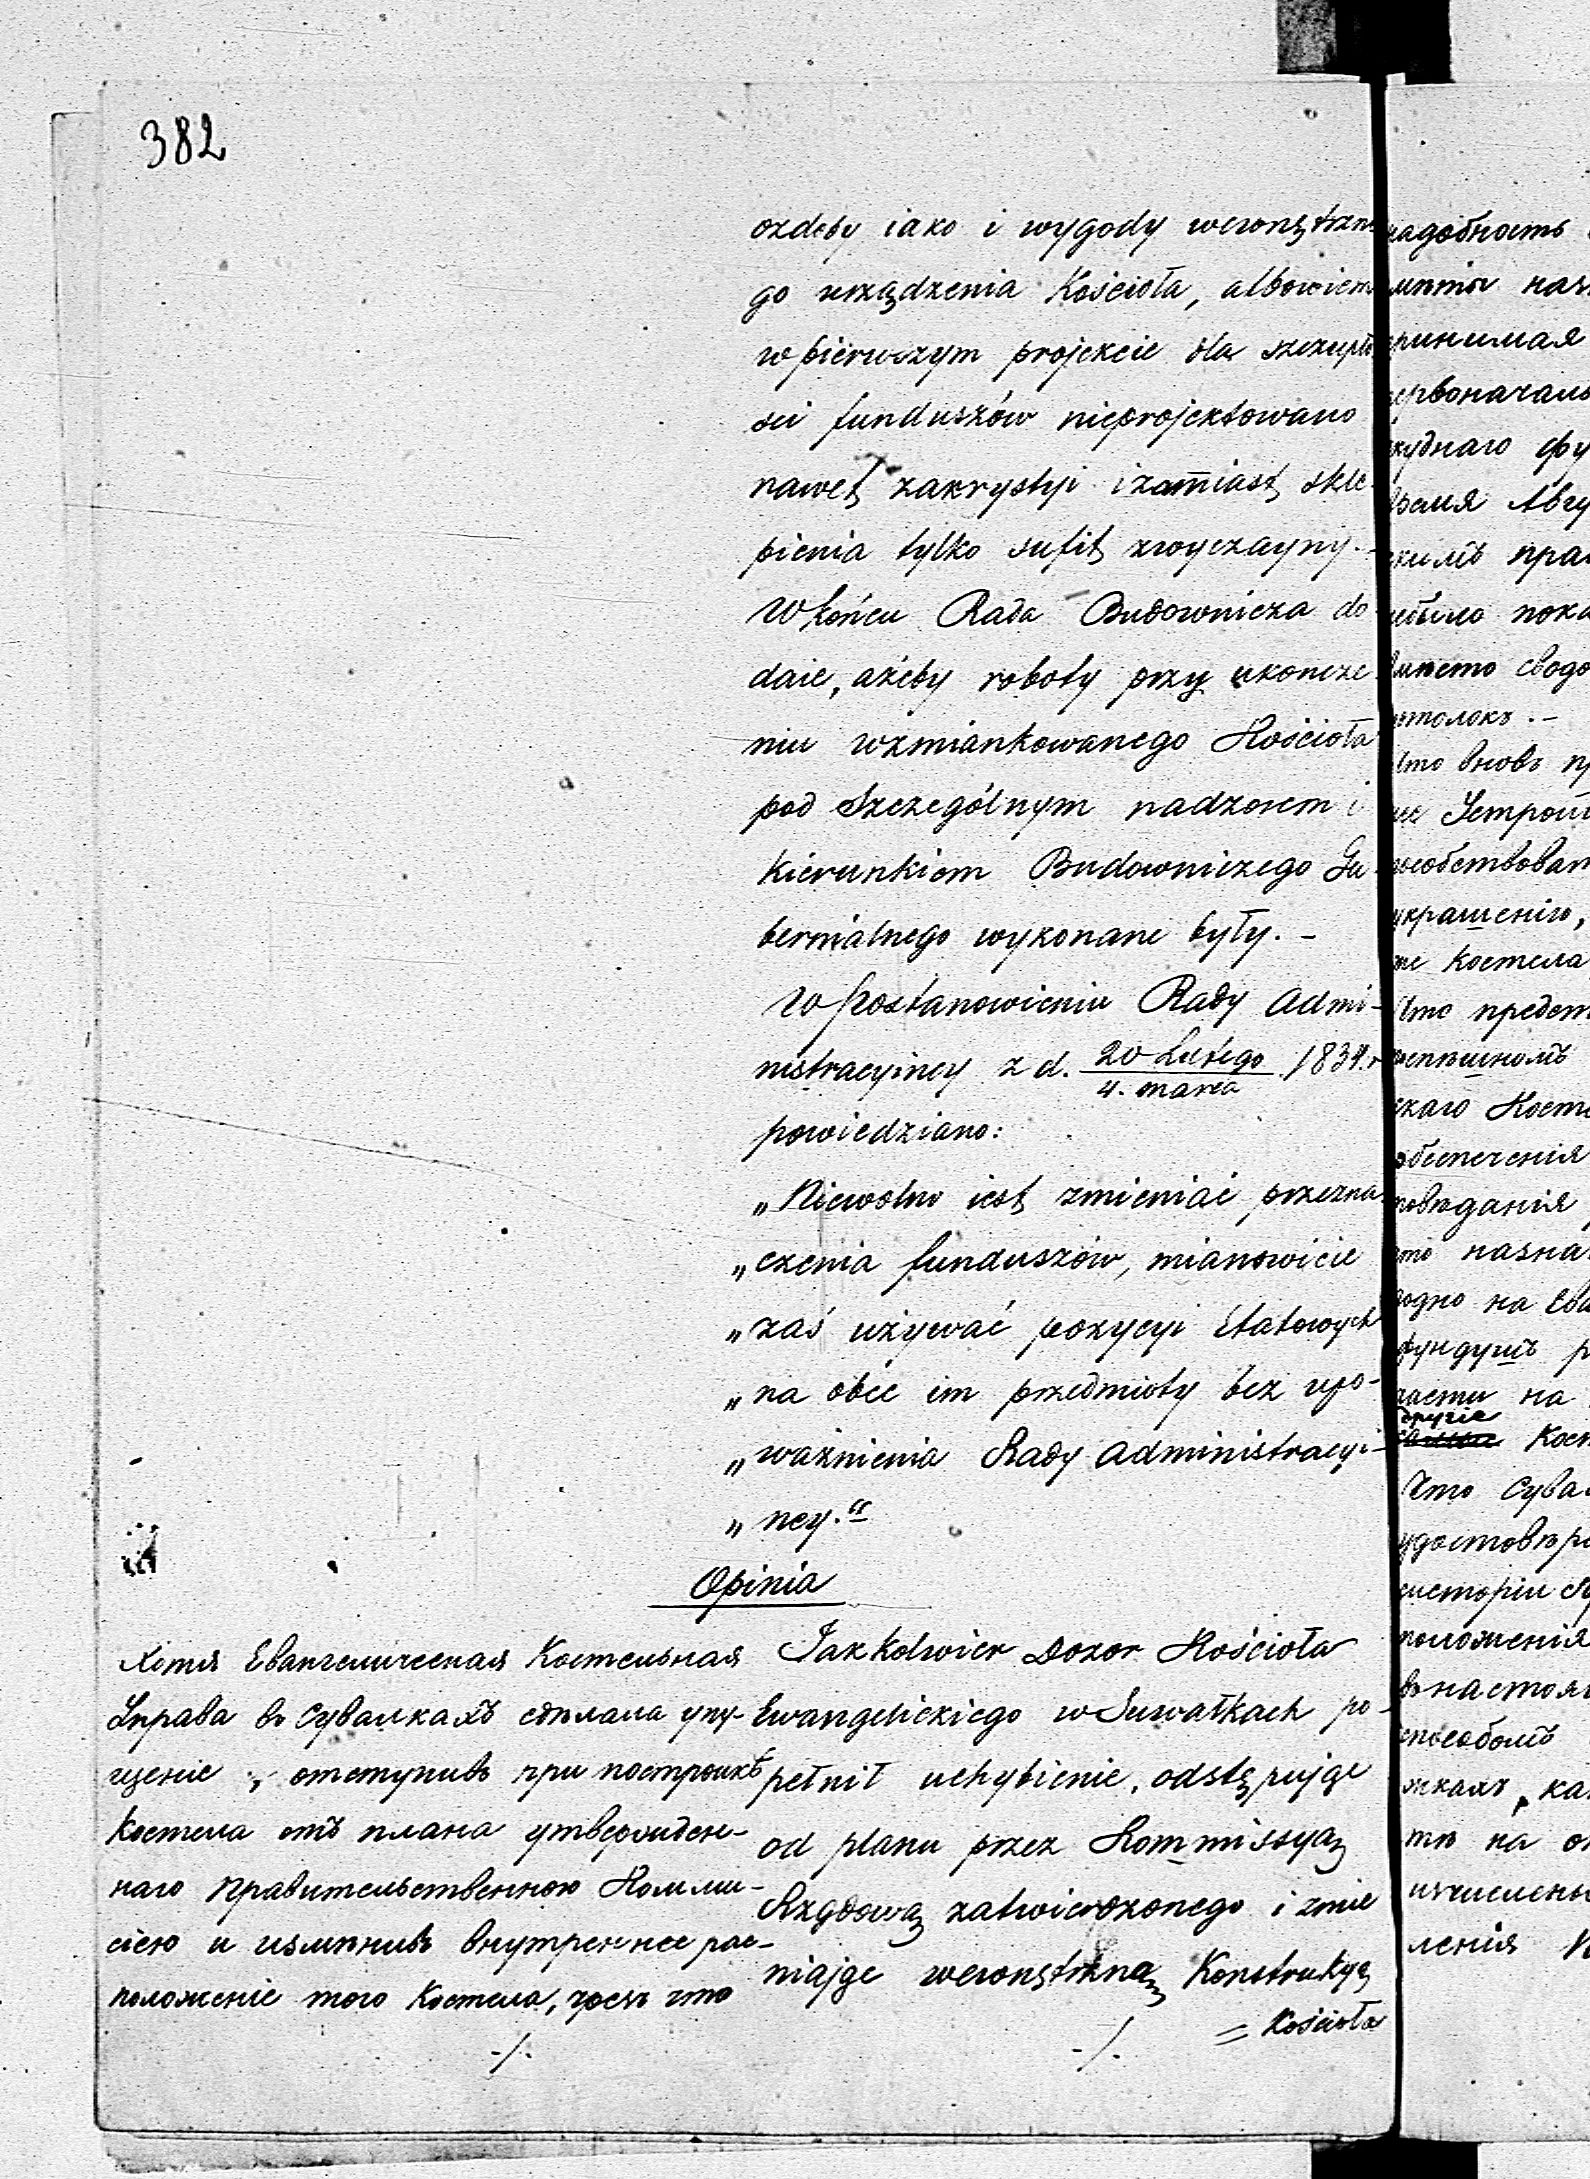 382
ozdoby iako i wygody wewnętrzne
go urządzenia Kościoła, albowiem
w pierwszym projekcie dla szczupło
ści funduszów nieprojektowano
nawet zakrystyi i zamiast skle-
pienia tylko sufit zwyczayny.-
W końcu Rada Budownicza do-
daie, ażeby roboty przy ukończe
niu wzmiankowanego Kościoła
pod Szczególnym nadzorem i
kierunkiem Budowniczego Gu-
bernialnego wykonane były.-
W Postanowieniu Rady Admi-
nistracyiney z d. 20 Lutego / 4. marca 1834. r
powiedziano:
„Niewolno iest zmieniać przezna
„czenia funduszów, mianowicie
„zaś używać pozycyi Etatowych
„na obce im przedmioty bez upo-
„ważnienia Rady Administracyi-
„ney."
Opinia
Хотя Евангелическая Костельная
Управа въ Сувалкахъ сдѣлала упу-
щеніе, отступивъ при постройкѣ
Костела отъ плана утвержден-
наго Правительственною Комми-
сіею и измѣнивъ внутреннее рас-
положеніе того Костела, чрезъ что
-/-
Jakkolwiek Dozor Kościoła
Ewangelickiego w Suwałkach po-
pełnił uchybienie, odstępując
od planu przez Kommissyą
Rządową zatwierdzonego i zmie
niając wewnętrzną Konstrukcyą
= Kościoła
-/-
надобность
принимая
первоначаль
скуднаго фу
время Авгу
скимъ пра
небыло пока
вмѣсто сводо
потолокъ.-
Что вновь п
украшенію,
же Костела
Что предст
поспѣшномъ
скаго Косте
обезпеченія
повѣданія
что назна
водно на Ева
фундушъ р
части на
другіе
Кост
Что Сува
удостовѣре
систоріи
положенія
въ настоя
способомъ
на о
исчислены
ленія